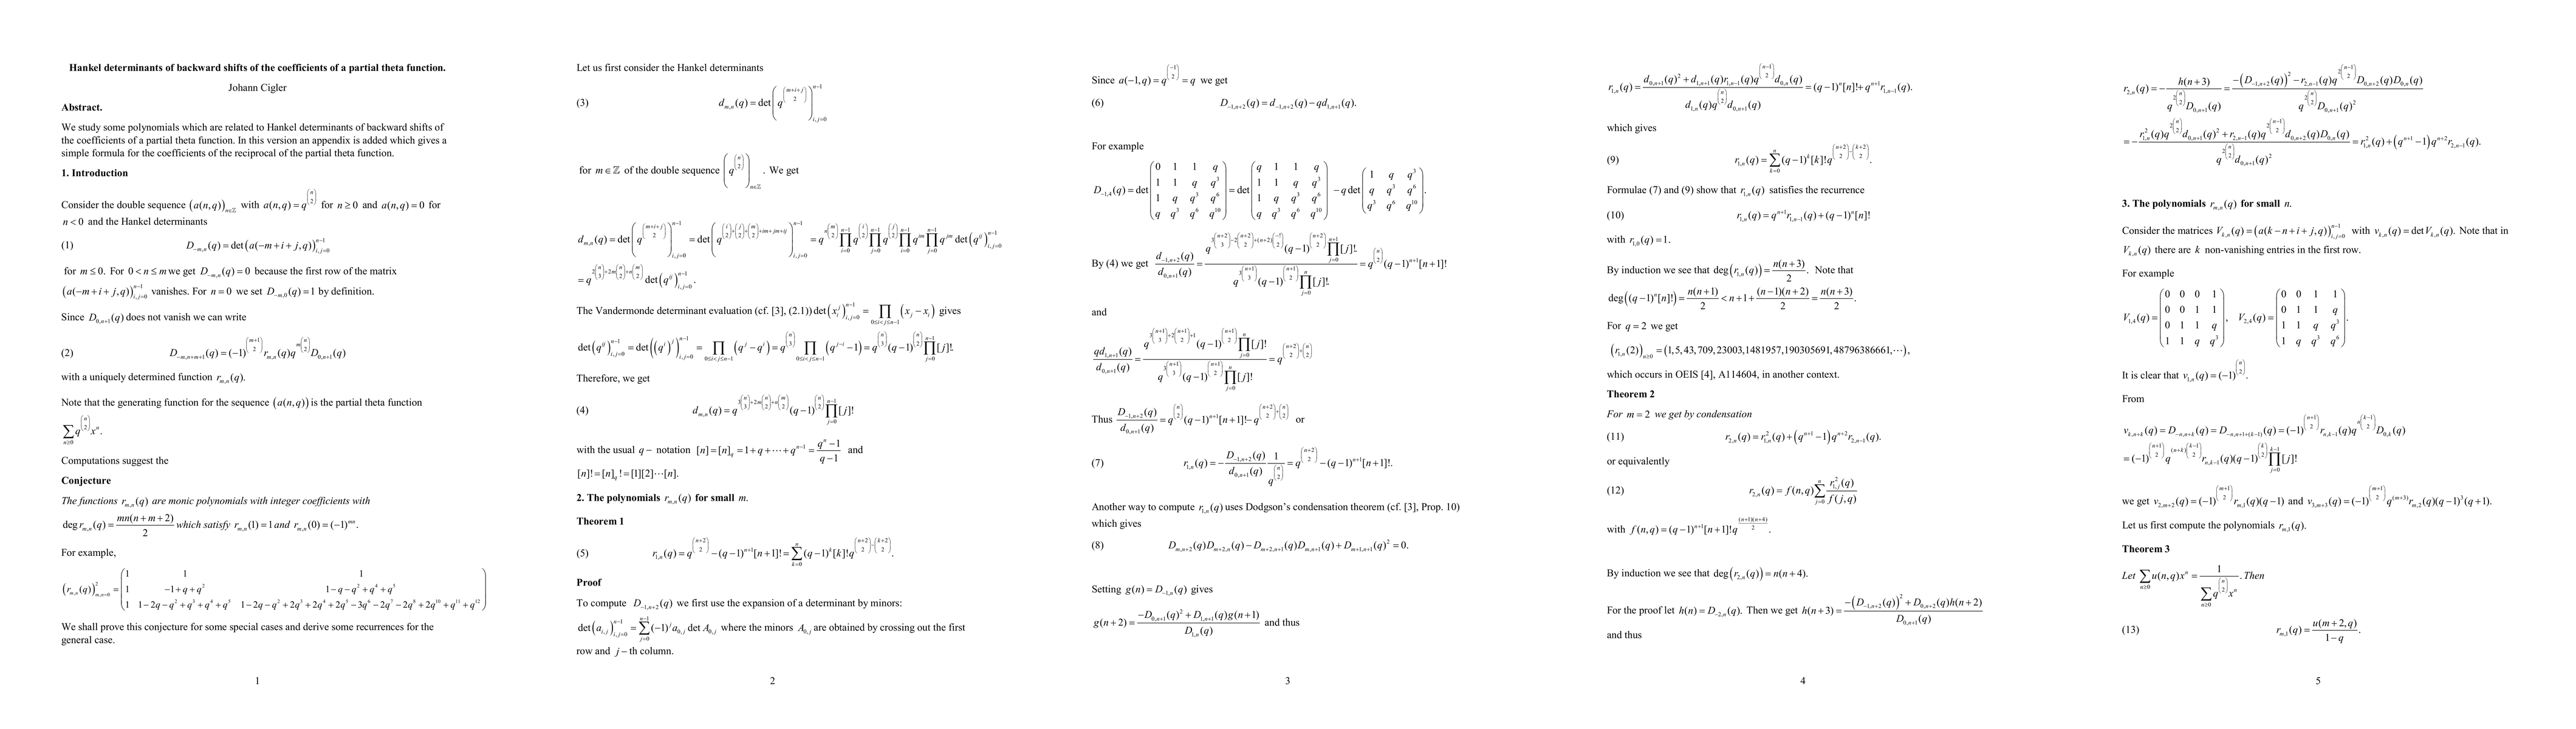 Hankel determinants of backward shifts of the coefficients of a partial theta function.
Johann Cigler
Abstract.
We study some polynomials which are related to Hankel determinants of backward shifts of
the coefficients of a partial theta function. In this version an appendix is added which gives a
simple formula for the coefficients of the reciprocal of the partial theta function.
1. Introduction
Consider the double sequence $(a(n,q))_{n\in\mathbb{Z}}$ with $a(n,q)=q^{\binom{n}{2}}$ for $n\ge 0$ and $a(n,q)=0$ for
$n<0$ and the Hankel determinants
(1) $D_{-m,n}(q)=\det(a(-m+i+j,q))_{i,j=0}^{n-1}$
for $m\le 0$. For $0<n\le m$ we get $D_{-m,n}(q)=0$ because the first row of the matrix
$(a(-m+i+j,q))_{i,j=0}^{n-1}$ vanishes. For $n=0$ we set $D_{-m,0}(q)=1$ by definition.
Since $D_{0,n+1}(q)$ does not vanish we can write
(2) $D_{-m,n+m+1}(q)=(-1)^{\binom{m+1}{2}}r_{m,n}(q)q^{m\binom{n}{2}}D_{0,n+1}(q)$
with a uniquely determined function $r_{m,n}(q)$.
Note that the generating function for the sequence $(a(n,q))$ is the partial theta function
$\sum_{n\ge 0}q^{\binom{n}{2}}x^n$.
Computations suggest the
Conjecture
The functions $r_{m,n}(q)$ are monic polynomials with integer coefficients with
$\deg r_{m,n}(q)=\frac{mn(n+m+2)}{2}$ which satisfy $r_{m,n}(1)=1$ and $r_{m,n}(0)=(-1)^{mn}$.
For example,
$(r_{m,n}(q))_{m,n=0}^{2}=\begin{pmatrix}1&1&1\\1&-1+q+q^2&1-q-q^2+q^4+q^5\\1&1-2q-q^2+q^3+q^4+q^5&1-2q-q^2+2q^3+2q^4+2q^5-3q^6-2q^7-2q^8+2q^9+2q^{10}+q^{11}+q^{12}\end{pmatrix}$
We shall prove this conjecture for some special cases and derive some recurrences for the
general case.
1
Let us first consider the Hankel determinants
(3) $d_{m,n}(q)=\det\left(q^{\binom{m+i+j}{2}}\right)_{i,j=0}^{n-1}$
for $m\in\mathbb{Z}$ of the double sequence $\left(q^{\binom{n}{2}}\right)_{n\in\mathbb{Z}}$. We get
$d_{m,n}(q)=\det\left(q^{\binom{m+i+j}{2}}\right)_{i,j=0}^{n-1}=\det\left(q^{\binom{i}{2}+\binom{j}{2}+\binom{m}{2}+im+jm+ij}\right)_{i,j=0}^{n-1}=q^{n\binom{m}{2}}\prod_{i=0}^{n-1}q^{\binom{i}{2}}\prod_{j=0}^{n-1}q^{\binom{j}{2}}\prod_{i=0}^{n-1}q^{im}\prod_{j=0}^{n-1}q^{jm}\det(q^{ij})_{i,j=0}^{n-1}$
$=q^{2\binom{n}{3}+2m\binom{n}{2}+n\binom{m}{2}}\det(q^{ij})_{i,j=0}^{n-1}$.
The Vandermonde determinant evaluation (cf. [3], (2.1)) $\det(x_i^j)_{i,j=0}^{n-1}=\prod_{0\le i<j\le n-1}(x_j-x_i)$ gives
$\det(q^{ij})_{i,j=0}^{n-1}=\det((q^i)^j)_{i,j=0}^{n-1}=\prod_{0\le i<j\le n-1}(q^j-q^i)=q^{\binom{n}{3}}\prod_{0\le i<j\le n-1}(q^{j-i}-1)=q^{\binom{n}{3}}(q-1)^{\binom{n}{2}}\prod_{j=0}^{n-1}[j]!$.
Therefore, we get
(4) $d_{m,n}(q)=q^{3\binom{n}{3}+2m\binom{n}{2}+n\binom{m}{2}}(q-1)^{\binom{n}{2}}\prod_{j=0}^{n-1}[j]!$
with the usual $q-$ notation $[n]=[n]_q=1+q+\cdots+q^{n-1}=\frac{q^n-1}{q-1}$ and
$[n]!=[n]_q!=[1][2]\cdots[n]$.
2. The polynomials $r_{m,n}(q)$ for small $m$.
Theorem 1
(5) $r_{1,n}(q)=q^{\binom{n+2}{2}}-(q-1)^{n+1}[n+1]!=\sum_{k=0}^{n}(q-1)^k[k]!q^{\binom{n+2}{2}-\binom{k+2}{2}}$.
Proof
To compute $D_{-1,n+2}(q)$ we first use the expansion of a determinant by minors:
$\det(a_{i,j})_{i,j=0}^{n-1}=\sum_{j=0}^{n-1}(-1)^ja_{0,j}\det A_{0,j}$ where the minors $A_{0,j}$ are obtained by crossing out the first
row and $j-$th column.
2
Since $a(-1,q)=q^{\binom{-1}{2}}=q$ we get
(6) $D_{-1,n+2}(q)=d_{-1,n+2}(q)-qd_{1,n+1}(q)$.
For example
$D_{-1,4}(q)=\det\begin{pmatrix}0&1&1&q\\1&1&q&q^3\\1&q&q^3&q^6\\q&q^3&q^6&q^{10}\end{pmatrix}=\det\begin{pmatrix}q&1&1&q\\1&1&q&q^3\\1&q&q^3&q^6\\q&q^3&q^6&q^{10}\end{pmatrix}-q\det\begin{pmatrix}1&q&q^3\\q&q^3&q^6\\q^3&q^6&q^{10}\end{pmatrix}$.
By (4) we get $\frac{d_{-1,n+2}(q)}{d_{0,n+1}(q)}=\frac{q^{3\binom{n+2}{3}-2\binom{n+2}{2}+(n+2)\binom{-1}{2}}(q-1)^{\binom{n+2}{2}}\prod_{j=0}^{n+1}[j]!}{q^{3\binom{n+1}{3}}(q-1)^{\binom{n+1}{2}}\prod_{j=0}^{n}[j]!}=q^{\binom{n}{2}}(q-1)^{n+1}[n+1]!$
and
$\frac{qd_{1,n+1}(q)}{d_{0,n+1}(q)}=\frac{q^{3\binom{n+1}{3}+2\binom{n+1}{2}+1}(q-1)^{\binom{n+1}{2}}\prod_{j=0}^{n}[j]!}{q^{3\binom{n+1}{3}}(q-1)^{\binom{n+1}{2}}\prod_{j=0}^{n}[j]!}=q^{\binom{n+2}{2}+\binom{n}{2}}$
Thus $\frac{D_{-1,n+2}(q)}{d_{0,n+1}(q)}=q^{\binom{n}{2}}(q-1)^{n+1}[n+1]!-q^{\binom{n+2}{2}+\binom{n}{2}}$ or
(7) $r_{1,n}(q)=-\frac{D_{-1,n+2}(q)}{d_{0,n+1}(q)}\frac{1}{q^{\binom{n}{2}}}=q^{\binom{n+2}{2}}-(q-1)^{n+1}[n+1]!$.
Another way to compute $r_{1,n}(q)$ uses Dodgson's condensation theorem (cf. [3], Prop. 10)
which gives
(8) $D_{m,n+2}(q)D_{m+2,n}(q)-D_{m+2,n+1}(q)D_{m,n+1}(q)+D_{m+1,n+1}(q)^2=0$.
Setting $g(n)=D_{-1,n}(q)$ gives
$g(n+2)=\frac{-D_{0,n+1}(q)^2+D_{1,n+1}(q)g(n+1)}{D_{1,n}(q)}$ and thus
3
$r_{1,n}(q)=\frac{d_{0,n+1}(q)^2+d_{1,n+1}(q)r_{1,n-1}(q)q^{\binom{n-1}{2}}d_{0,n}(q)}{d_{1,n}(q)q^{\binom{n}{2}}d_{0,n+1}(q)}=(q-1)^n[n]!+q^{n+1}r_{1,n-1}(q)$.
which gives
(9) $r_{1,n}(q)=\sum_{k=0}^{n}(q-1)^k[k]!q^{\binom{n+2}{2}-\binom{k+2}{2}}$.
Formulae (7) and (9) show that $r_{1,n}(q)$ satisfies the recurrence
(10) $r_{1,n}(q)=q^{n+1}r_{1,n-1}(q)+(q-1)^n[n]!$
with $r_{1,0}(q)=1$.
By induction we see that $\deg(r_{1,n}(q))=\frac{n(n+3)}{2}$. Note that
$\deg((q-1)^n[n]!)=\frac{n(n+1)}{2}<n+1+\frac{(n-1)(n+2)}{2}=\frac{n(n+3)}{2}$.
For $q=2$ we get
$(r_{1,n}(2))_{n\ge 0}=(1,5,43,709,23003,1481957,190305691,48796386661,\cdots)$,
which occurs in OEIS [4], A114604, in another context.
Theorem 2
For $m=2$ we get by condensation
(11) $r_{2,n}(q)=r_{1,n}^2(q)+(q^{n+1}-1)q^{n+2}r_{2,n-1}(q)$.
or equivalently
(12) $r_{2,n}(q)=f(n,q)\sum_{j=0}^{n}\frac{r_{1,j}^2(q)}{f(j,q)}$
with $f(n,q)=(q-1)^{n+1}[n+1]!q^{\frac{(n+1)(n+4)}{2}}$.
By induction we see that $\deg(r_{2,n}(q))=n(n+4)$.
For the proof let $h(n)=D_{-2,n}(q)$. Then we get $h(n+3)=\frac{-(D_{-1,n+2}(q))^2+D_{0,n+2}(q)h(n+2)}{D_{0,n+1}(q)}$
and thus
4
$r_{2,n}(q)=-\frac{h(n+3)}{q^{2\binom{n}{2}}D_{0,n+1}(q)}=\frac{-(D_{-1,n+2}(q))^2-r_{2,n-1}(q)q^{2\binom{n-1}{2}}D_{0,n+2}(q)D_{0,n}(q)}{q^{2\binom{n}{2}}D_{0,n+1}(q)^2}$
$=-\frac{r_{1,n}^2(q)q^{2\binom{n}{2}}d_{0,n+1}(q)^2+r_{2,n-1}(q)q^{2\binom{n-1}{2}}d_{0,n+2}(q)D_{0,n}(q)}{q^{2\binom{n}{2}}d_{0,n+1}(q)^2}=r_{1,n}^2(q)+(q^{n+1}-1)q^{n+2}r_{2,n-1}(q)$.
3. The polynomials $r_{m,n}(q)$ for small $n$.
Consider the matrices $V_{k,n}(q)=(a(k-n+i+j,q))_{i,j=0}^{n-1}$ with $v_{k,n}(q)=\det V_{k,n}(q)$. Note that in
$V_{k,n}(q)$ there are $k$ non-vanishing entries in the first row.
For example
$V_{1,4}(q)=\begin{pmatrix}0&0&0&1\\0&0&1&1\\0&1&1&q\\1&1&q&q^3\end{pmatrix}$, $V_{2,4}(q)=\begin{pmatrix}0&0&1&1\\0&1&1&q\\1&1&q&q^3\\1&q&q^3&q^6\end{pmatrix}$.
It is clear that $v_{1,n}(q)=(-1)^{\binom{n}{2}}$.
From
$v_{k,n+k}(q)=D_{-n,n+k}(q)=D_{-n,n+1+(k-1)}(q)=(-1)^{\binom{n+1}{2}}r_{n,k-1}(q)q^{n\binom{k-1}{2}}D_{0,k}(q)$
$=(-1)^{\binom{n+1}{2}}q^{(n+k)\binom{k-1}{2}}r_{n,k-1}(q)(q-1)^{\binom{k}{2}}\prod_{j=0}^{k-1}[j]!$
we get $v_{2,m+2}(q)=(-1)^{\binom{m+1}{2}}r_{m,1}(q)(q-1)$ and $v_{3,m+3}(q)=(-1)^{\binom{m+1}{2}}q^{(m+3)}r_{m,2}(q)(q-1)^3(q+1)$.
Let us first compute the polynomials $r_{m,1}(q)$.
Theorem 3
Let $\sum_{n\ge 0}u(n,q)x^n=\frac{1}{\sum_{n\ge 0}q^{\binom{n}{2}}x^n}$. Then
(13) $r_{m,1}(q)=\frac{u(m+2,q)}{1-q}$.
5